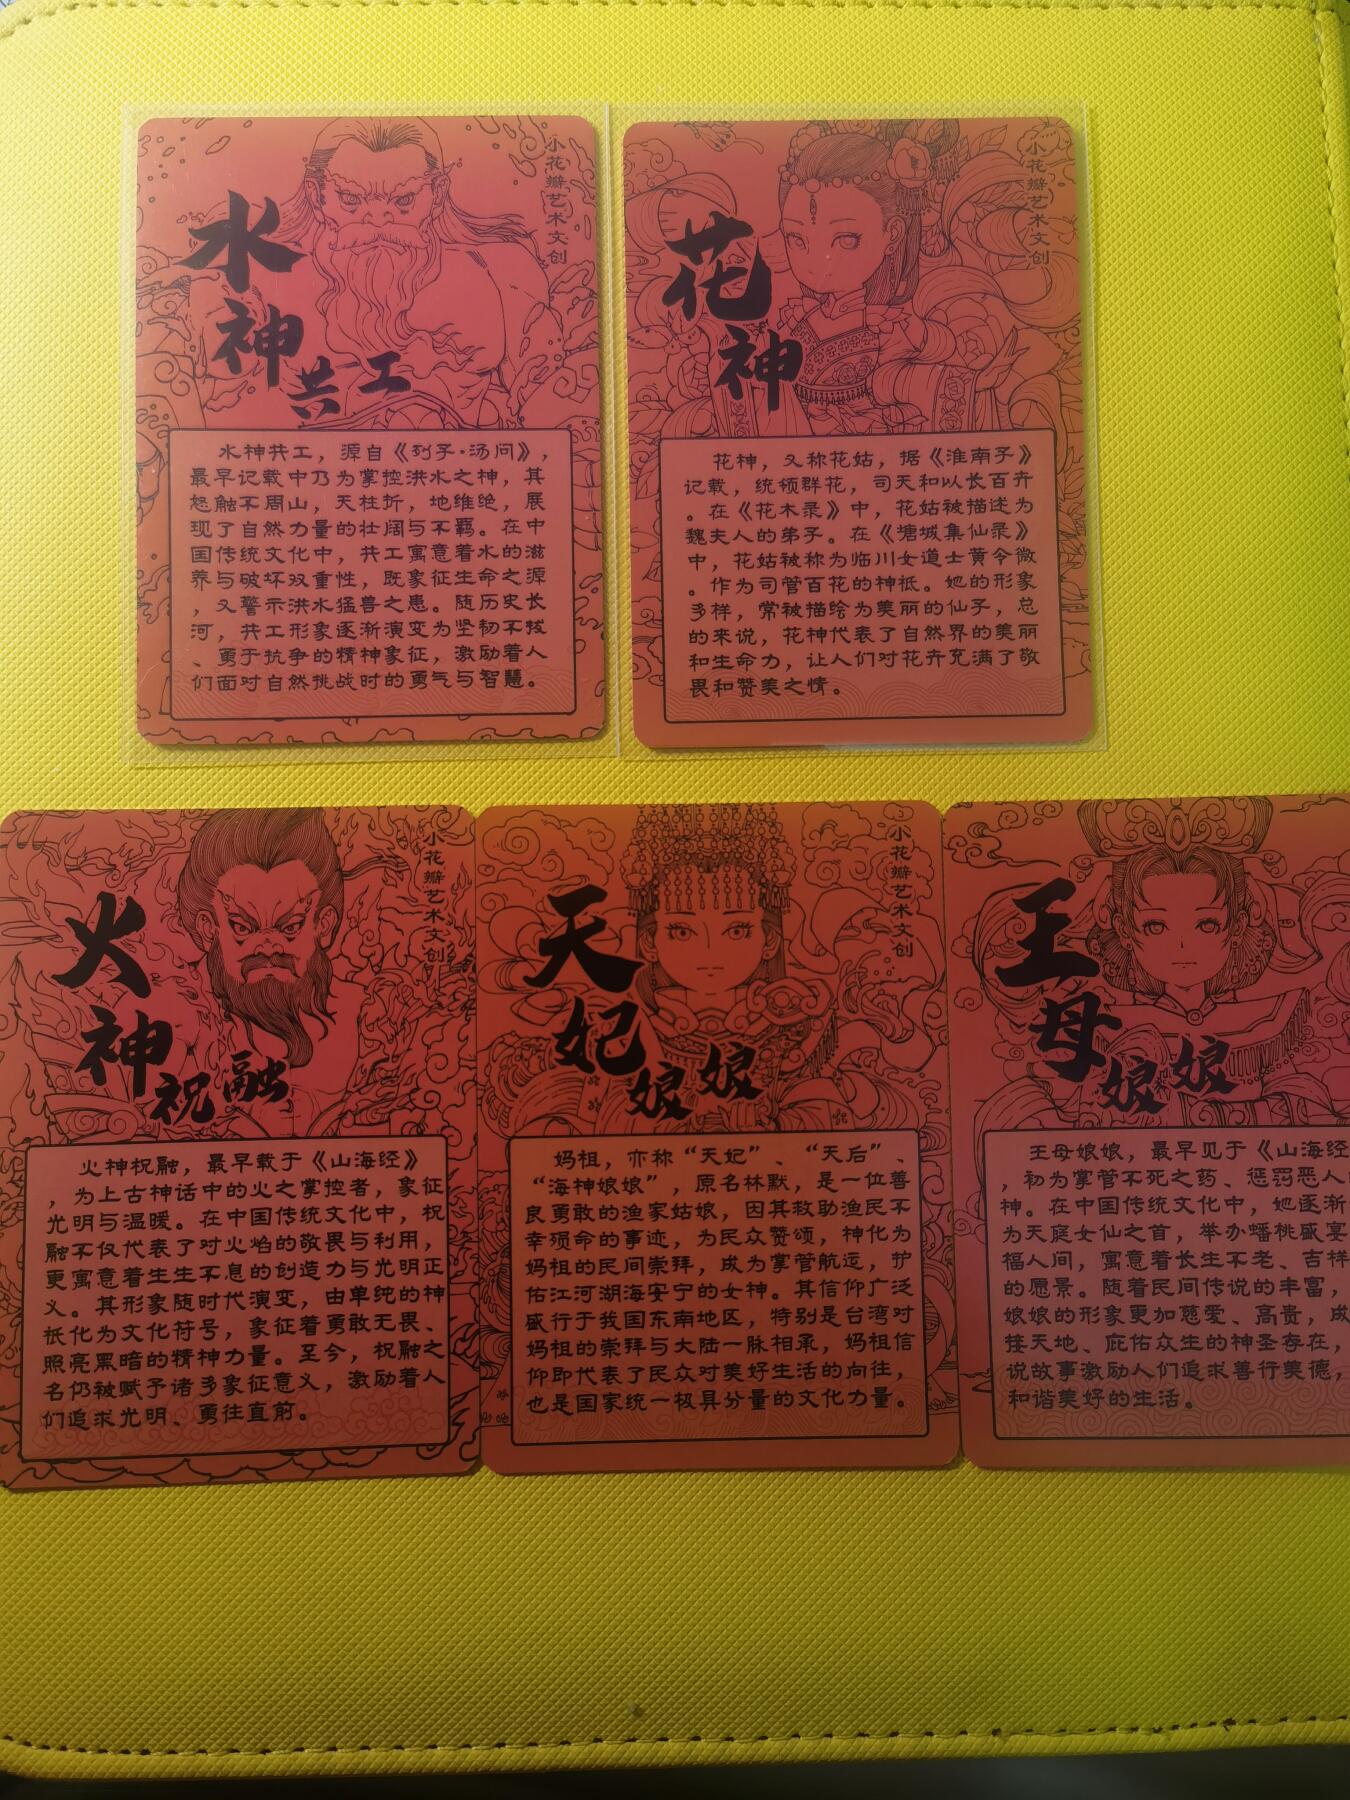 小花瓣艺术文创
水神
共工
水神共工，源自《列子·汤问》，
最早记载中乃为掌控洪水之神，其
怒触不周山，天柱折，地维绝，展
现了自然力量的壮阔与不羁。在中
国传统文化中，共工寓意着水的滋
养与破坏双重性，既象征生命之源
，又警示洪水猛兽之患。随历史长
河，共工形象逐渐演变为坚韧不拔
、勇于抗争的精神象征，激励着人
们面对自然挑战时的勇气与智慧。
小花瓣艺术文创
花神
花神，又称花姑，据《淮南子》
记载，统领群花，司天和以长百卉
。在《花木录》中，花姑被描述为
魏夫人的弟子。在《墉城集仙录》
中，花姑被称为临川女道士黄令微
。作为司管百花的神祇。她的形象
多样，常被描绘为美丽的仙子，总
的来说，花神代表了自然界的美丽
和生命力，让人们对花卉充满了敬
畏和赞美之情。
小花瓣艺术文创
火神
祝融
火神祝融，最早载于《山海经》
，为上古神话中的火之掌控者，象征
光明与温暖。在中国传统文化中，祝
融不仅代表了对火焰的敬畏与利用，
更寓意着生生不息的创造力与光明正
义。其形象随时代演变，由单纯的神
祇化为文化符号，象征着勇敢无畏、
照亮黑暗的精神力量。至今，祝融之
名仍被赋予诸多象征意义，激励着人
们追求光明、勇往直前。
小花瓣艺术文创
天妃
娘娘
妈祖，亦称“天妃”、“天后”、
“海神娘娘”，原名林默，是一位善
良勇敢的渔家姑娘，因其救助渔民不
幸殒命的事迹，为民众赞颂，神化为
妈祖的民间崇拜，成为掌管航运，护
佑江河湖海安宁的女神。其信仰广泛
盛行于我国东南地区，特别是台湾对
妈祖的崇拜与大陆一脉相承，妈祖信
仰即代表了民众对美好生活的向往，
也是国家统一极具分量的文化力量。
王母
娘娘
王母娘娘，最早见于《山海经
，初为掌管不死之药、惩罚恶人
神。在中国传统文化中，她逐渐
为天庭女仙之首，举办蟠桃盛宴
福人间，寓意着长生不老、吉祥
的愿景。随着民间传说的丰富，
娘娘的形象更加慈爱、高贵，成
接天地、庇佑众生的神圣存在，
说故事激励人们追求善行美德，
和谐美好的生活。